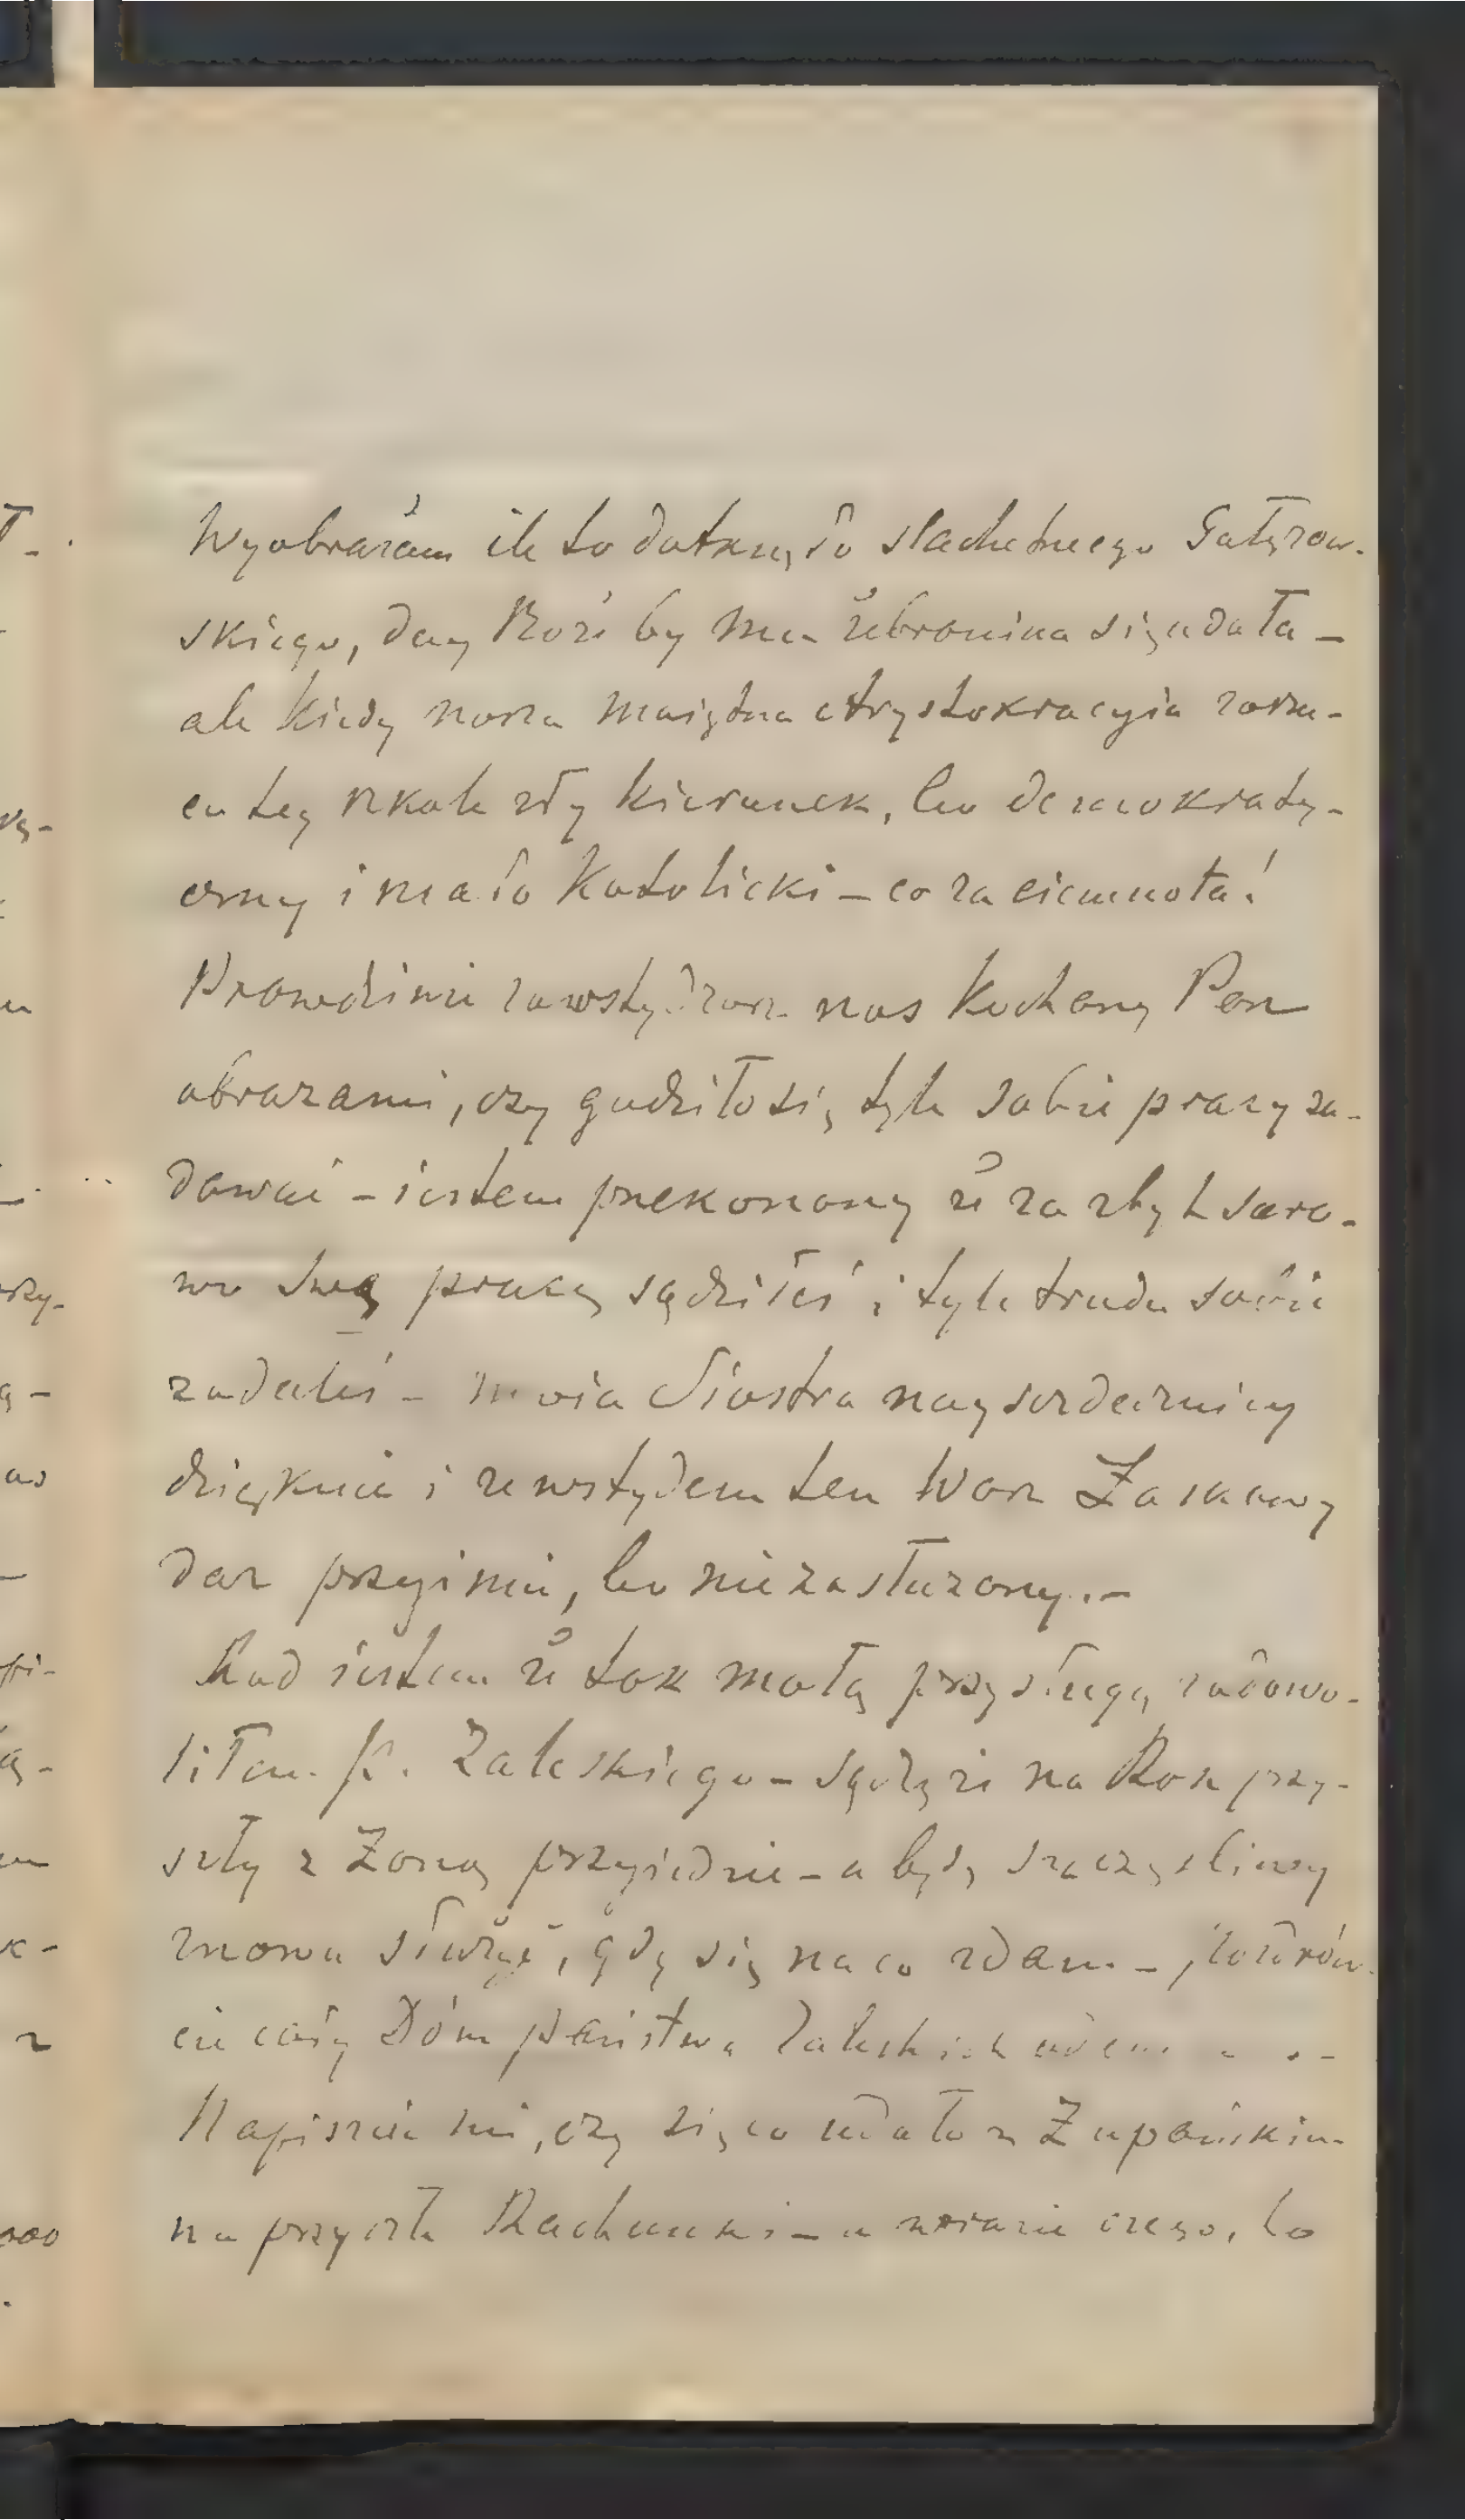 Wyobrażam ile to dotknęło slachetnego Gałęzow-
skiego, day Boże by mu żebranina się udała –
ale kiedy nasza maiętna Arystokracyia zarzu-
ca tey szkole zły kierunek, bo demokraty-
czny i mało Katolicki – co za ciemnota!
Prawdziwie zawstydzasz nas Kochany Pan
obrazami, czy godziło się tyle sobie pracy za-
dawać – iestem przekonany że za zbyt suro-
wo swą pracę sądziłeś i tyle trudu sobie
zadałeś – moia Siostra nayserdeczniey
dziękuie i ze wstydem ten Wasz Łaskawy
dar przyimie, bo niezasłużony. –
Rad iestem że tak małą przysługą zadowo-
liłem p. Zaleskiego – sądzę że na Rok przy-
szły z Żoną przyiedzie – a będę szczęśliwy
znowu służyć, gdy się na co zdam –
cie cały Dóm państwa Zaleskich odemnie –
Napiszcie mi, czy się co udało z Żupańskim
na przyszłe Rachunki – a w razie czego, to